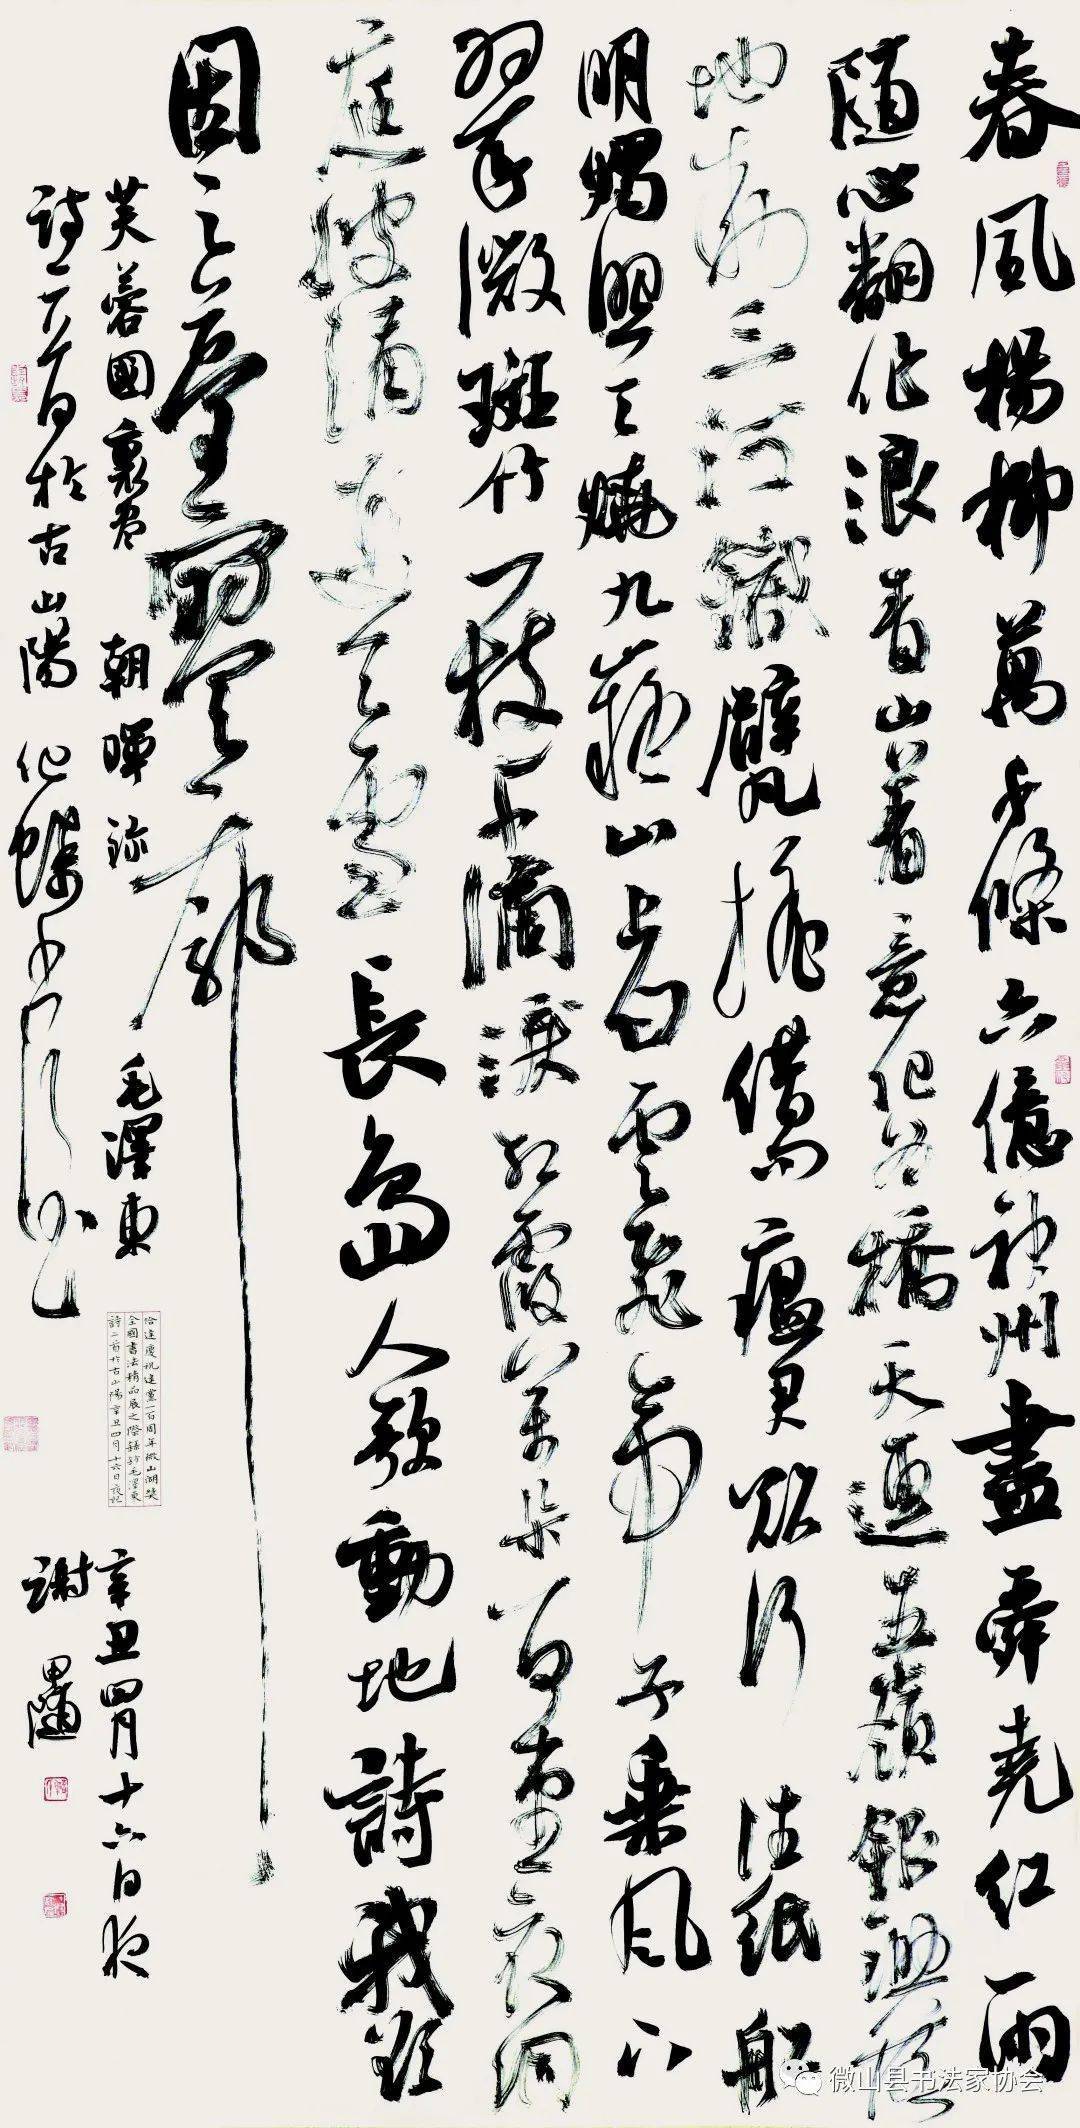 春風楊柳萬千條六億神州盡舜堯紅雨
隨心翻作浪青山着意化為橋天連五嶺銀鋤落
地動三河鐵臂搖借問瘟君欲何往紙船
明燭照天燒九嶷山上白雲飛帝子乘風下
翠微斑竹一枝千滴淚紅霞萬朵百重衣洞
庭波涌連天雪長島人歌動地詩我欲
因之夢寥廓
芙蓉國裏盡朝暉 毛澤東
詩二首於古山陽
恰逢慶祝建黨一百周年微山湖獎
全國書法精品展之際録毛澤東
詩二首於古山陽辛丑四月十六日夜記
辛丑四月十六日夜
謝
微山县书法家协会